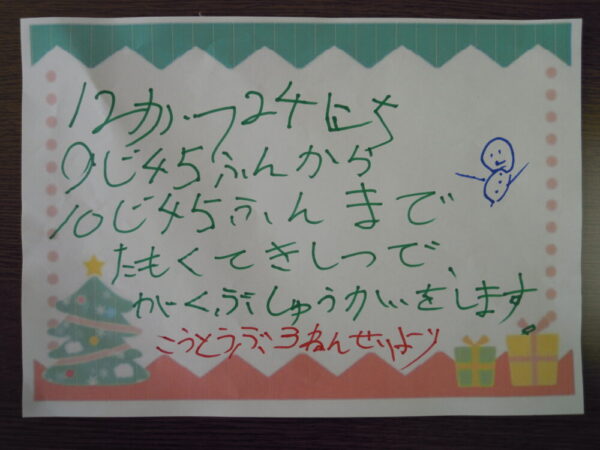 12がつ24にち
9じ45ふんから
10じ45ふんまで
たもくてきしつで、
がくぶしゅうかいをします。
こうとうぶ3ねんせいより